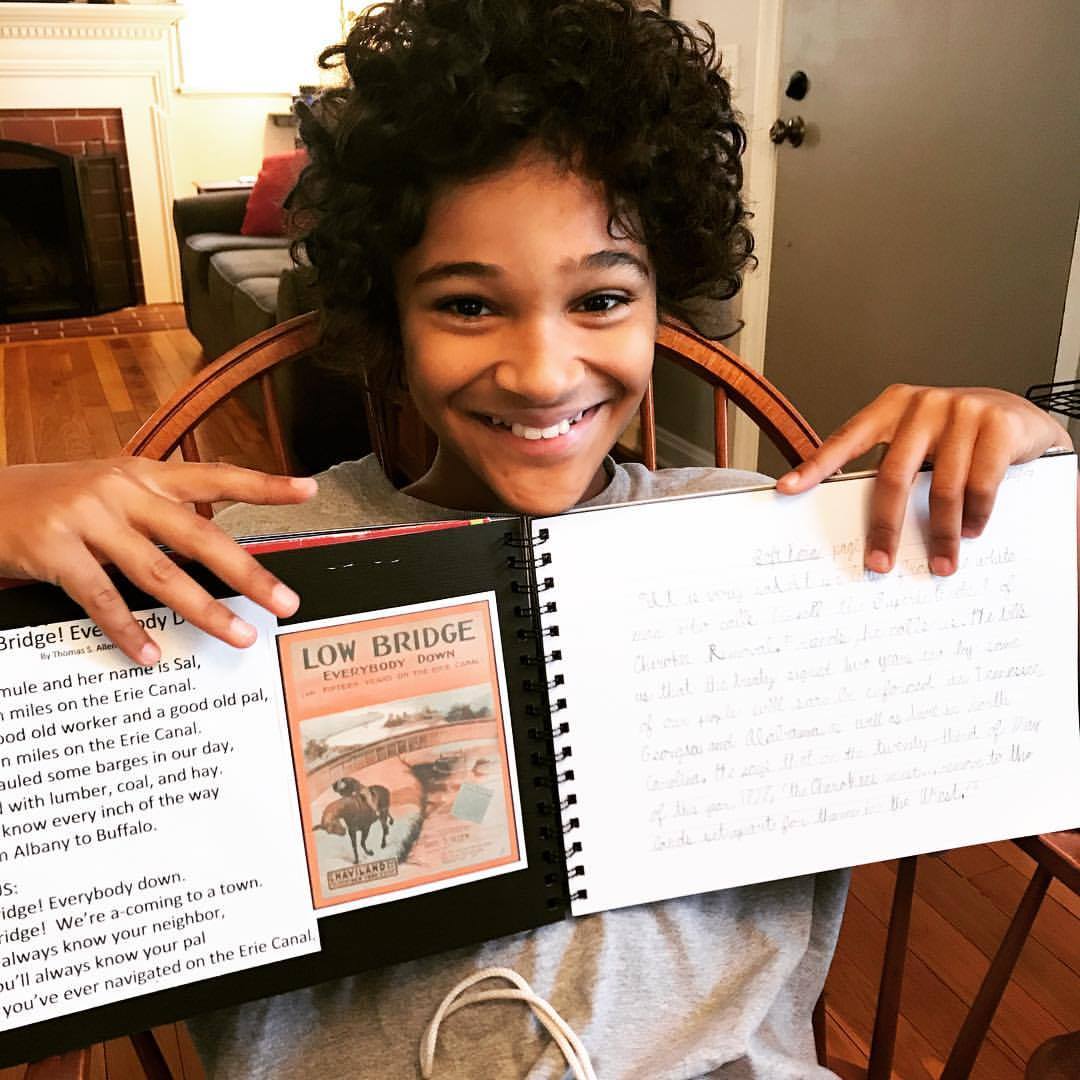 Bridge! Everybody D
By Thomas S. Allen
mule and her name is Sal,
n miles on the Erie Canal.
ood old worker and a good old pal,
n miles on the Erie Canal.
auled some barges in our day,
d with lumber, coal, and hay.
know every inch of the way
m Albany to Buffalo.
US:
ridge! Everybody down.
ridge! We're a-coming to a town.
always know your neighbor,
ou'll always know your pal
you've ever navigated on the Erie Canal.
LOW BRIDGE
EVERYBODY DOWN
FIFTEEN YEARS ON THE ERIE CANAL
HAVILAND
page
It is very white
man who calls Superintendent of
Cherokee Removal. he calls us. He tells
us that the treaty signed two years ago by some
of our people will enforced. Tennessee
Georgia and Alabama as well as north
Carolina. the twenty-third of May
of this year the Cherokees must remove to the
lands set apart for them in the West."